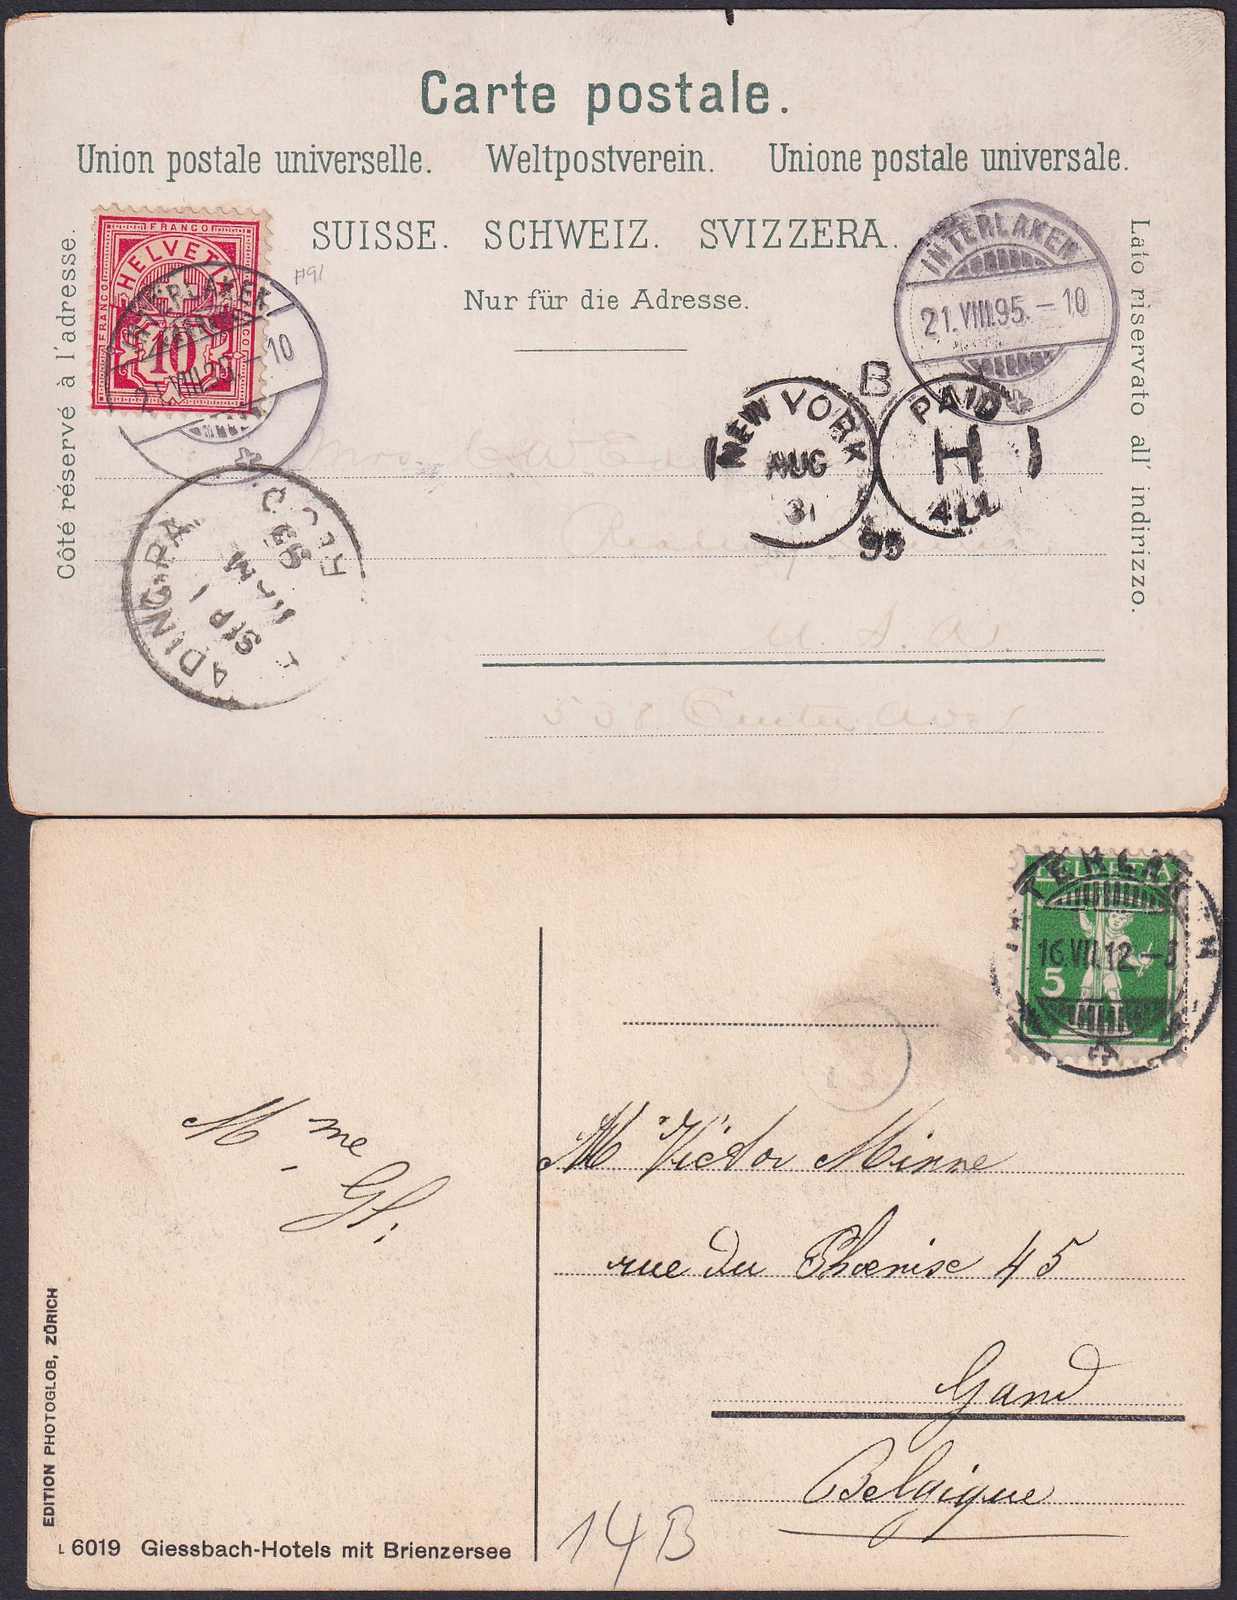 Carte postale.
Union postale universelle. Weltpostverein. Unione postale universale.
SUISSE. SCHWEIZ. SVIZZERA.
Nur für die Adresse.
Côté réservé à l'adresse.
Lato riservato all' indirizzo.
FRANCO
HELVETIA
FRANCO
10
INTERLAKEN
21.VIII. -10
#91
INTERLAKEN
21.VIII.95.-10
B
NEW YORK
AUG
31
95
PAID
H
ALL
ADING.PA
SEP 1
11 AM
95
REC'D.
Mrs.
U. S. A.
538 Center Ave
HELVETIA
5
INTERLAKEN
16.VII.12.-
Mme
Gf.
M Victor Minne
rue du Phœnix 45
Gand
Belgique
14B
EDITION PHOTOGLOB, ZÜRICH
L 6019 Giessbach-Hotels mit Brienzersee